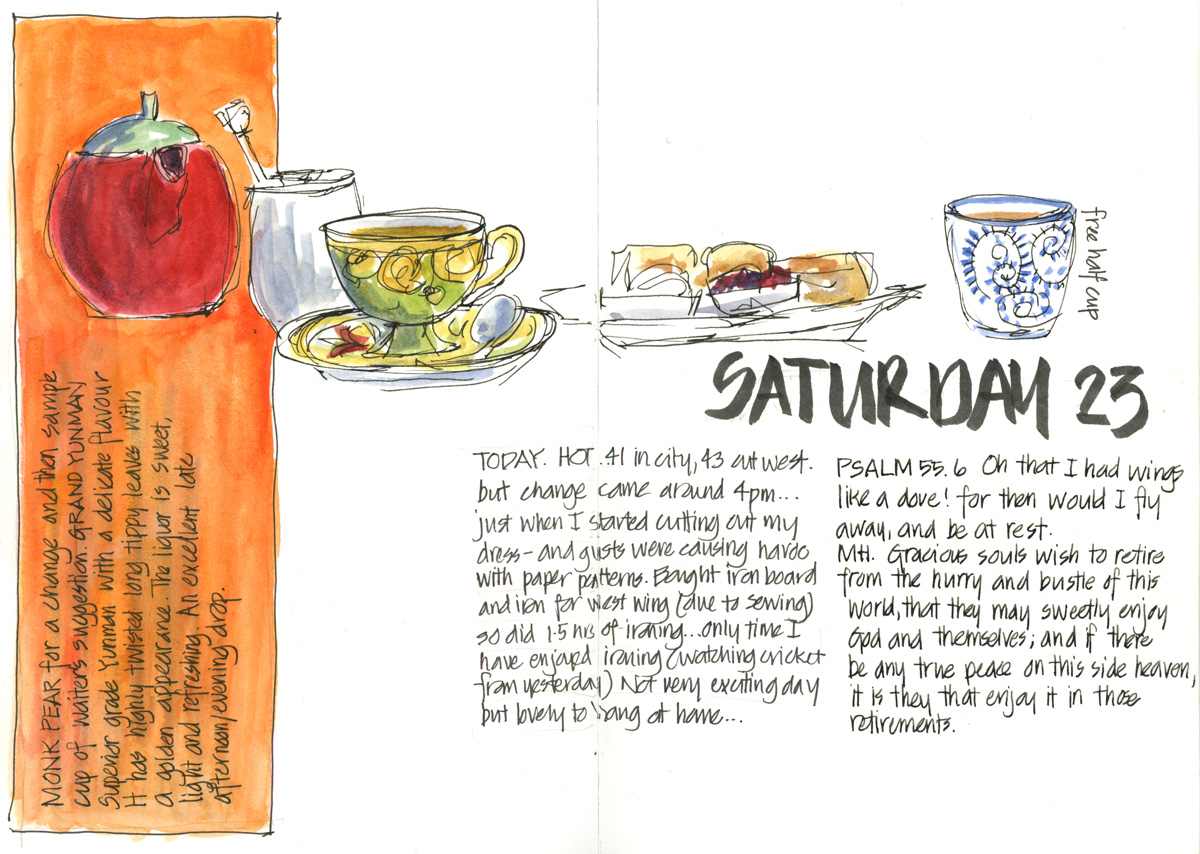 MONK PEAR for a change and then sample
cup of waiter's suggestion. GRAND YUNMAN
Superior grade Yunman with a delicate flavour
It has highly twisted long tippy leaves with
a golden appearance. The liquor is sweet,
light and refreshing. An excellent late
afternoon/evening drop.
free half cup
SATURDAY 23
TODAY. HOT. 41 in city, 43 out west.
but change came around 4pm...
just when I started cutting out my
dress - and gusts were causing havoc
with paper patterns. Bought iron board
and iron for west wing (due to sewing)
so did 1.5 hrs of ironing... only time I
have enjoyed ironing (watching cricket
from yesterday) Not very exciting day
but lovely to hang at home...
PSALM 55.6 Oh that I had wings
like a dove! for then would I fly
away, and be at rest.
MH. Gracious souls wish to retire
from the hurry and bustle of this
world, that they may sweetly enjoy
God and themselves; and if there
be any true peace on this side heaven,
it is they that enjoy it in those
retirements.